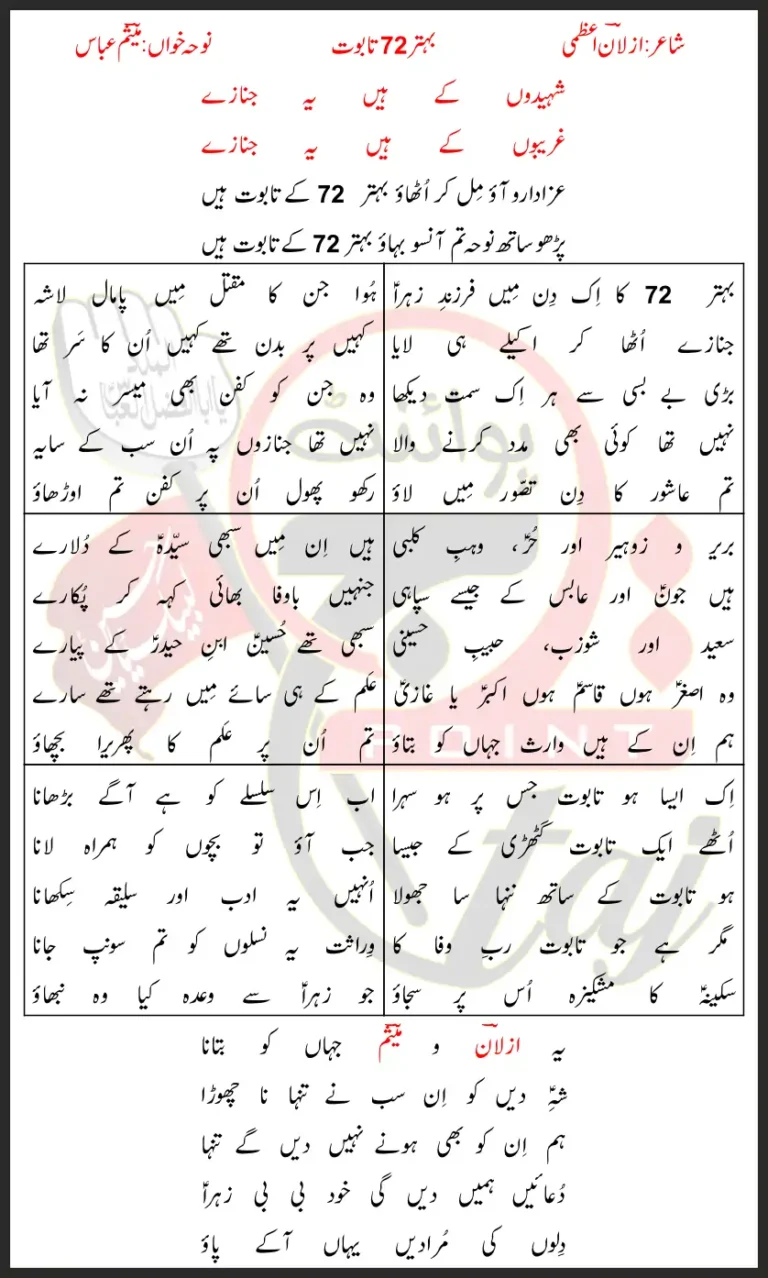 شاعر: ازلان اعظمی بہتر 72 تابوت نوحہ خواں: میثم عباس
شہیدوں کے ہیں یہ جنازے
غریبوں کے ہیں یہ جنازے
عزادارو آؤ مِل کر اُٹھاؤ بہتر 72 کے تابوت ہیں
پڑھو ساتھ نوحہ تم آنسو بہاؤ بہتر 72 کے تابوت ہیں
بہتر 72 کا اِک دِن مِیں فرزندِ زہراؑ
جنازے اُٹھا کر اکیلے ہی لایا
بڑی بے بسی سے ہر اِک سمت دیکھا
نہیں تھا کوئی بھی مدد کرنے والا
تم عاشور کا دِن تصّور مِیں لاؤ
ہُوا جن کا مقتل مِیں پامال لاشہ
کہیں پر بدن تھے کہیں اُن کا سَر تھا
وہ جن کو کفن بھی میسر نہ آیا
نہیں تھا جنازوں پہ اُن سب کے سایہ
رکھو پھول اُن پر کفن تم اوڑھاؤ
بریر و زوہیر اور حُرؑ، وہبِ کلبی
ہیں جونؑ اور عابس کے جیسے سپاہی
سعید اور شوزب، حبیبِ حسینی
وہ اصغرؑ ہوں قاسمؑ ہوں اکبرؑ یا غازیؑ
ہم اِن کے ہیں وارث جہاں کو بتاؤ
ہیں اِن مِیں سبھی سیّدہؑ کے دُلارے
جنہیں باوفا بھائی کہہ کر پُکارے
سبھی تھے حُسینؑ ابنِ حیدرؑ کے پیارے
عَلم کے ہی سائے مِیں رہتے تھے سارے
تم اُن پر عَلم کا پھریرا بچھاؤ
اِک ایسا ہو تابوت جس پر ہو سہرا
اُٹھے ایک تابوت گٹھڑی کے جیسا
ہو تابوت کے ساتھ ننہا سا جھولا
مگر ہے جو تابوت ربِ وفا کا
سکینہؑ کا مشکیزہ اُس پر سجاؤ
اب اِس سلسلے کو ہے آگے بڑھانا
جب آؤ تو بچوں کو ہمراہ لانا
اُنہیں یہ ادب اور سلیقہ سِکھانا
وِراثت یہ نسلوں کو تم سونپ جانا
جو زہراؑ سے وعدہ کیا وہ نبھاؤ
یہ ازلان و میثم جہاں کو بتانا
شہِؑ دیں کو اِن سب نے تنہا نا چھوڑا
ہم اِن کو بھی ہونے نہیں دیں گے تنہا
دُعائیں ہمیں دیں گی خود بی بی زہراؑ
دِلوں کی مُرادیں یہاں آکے پاؤ
پوائنٹ
POINT
taj